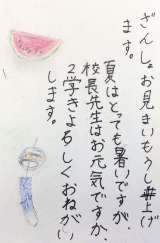 ざんしょお見まいもうし上げ
ます。
夏はとっても暑いですが、
校長先生はお元気ですか。
2学きよろしくおねがい
します。